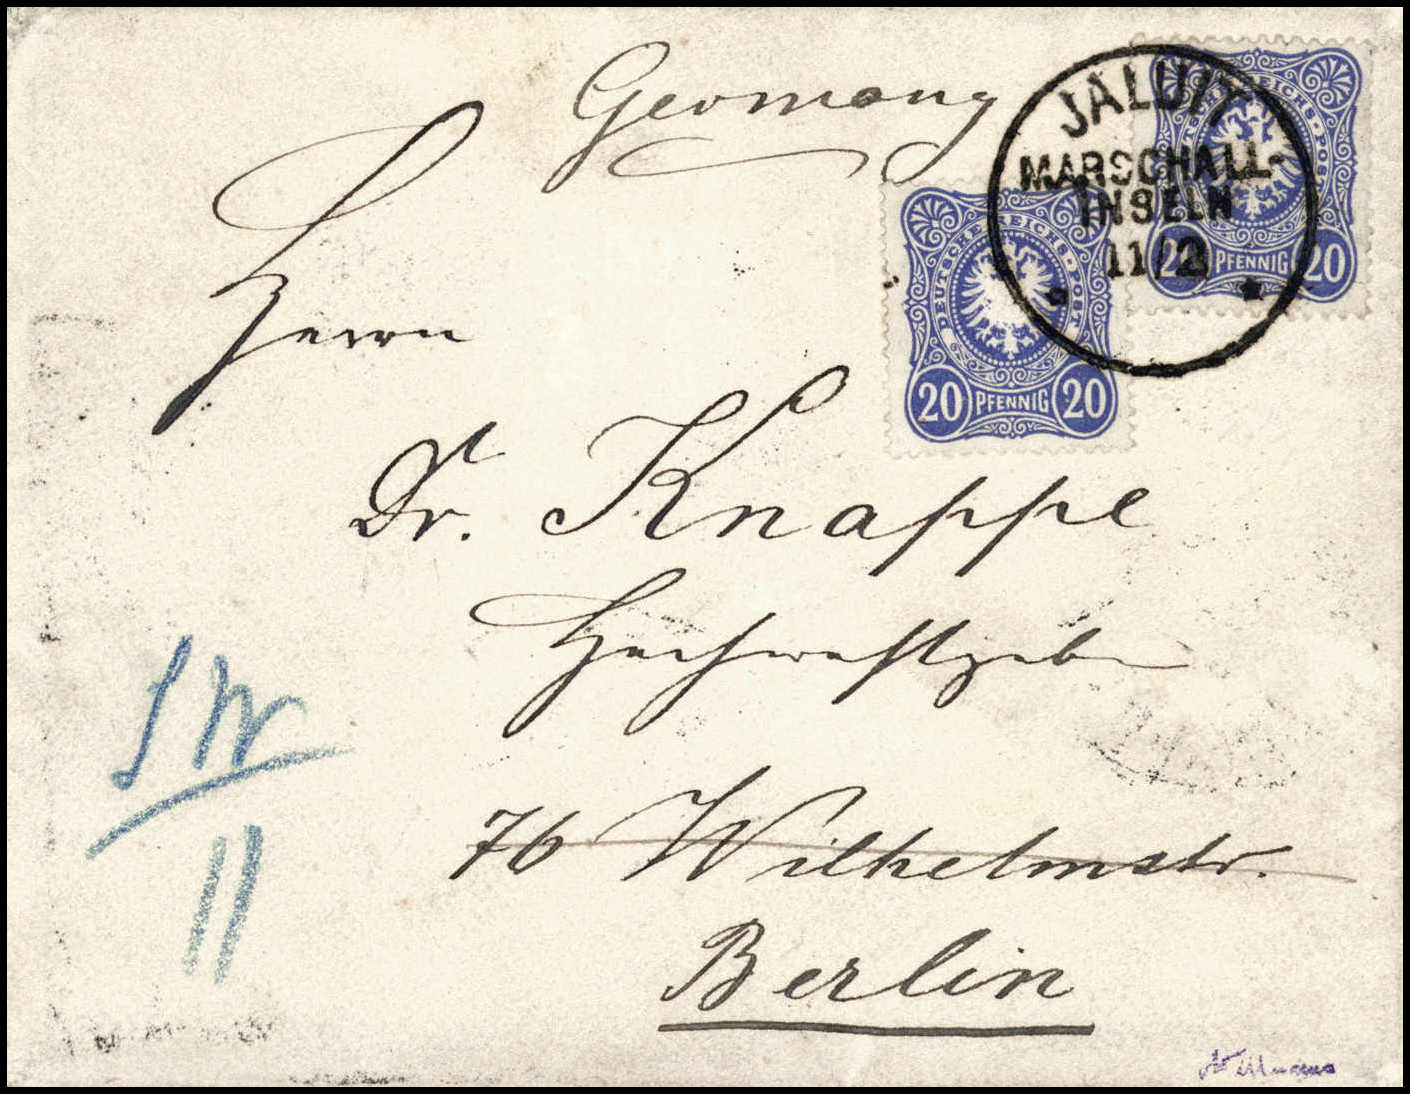 Germany
JALUIT
MARSCHALL-
INSELN
11/2
DEUTSCHE REICHS-POST
20 PFENNIG 20
DEUTSCHE REICHS-POST
20 PFENNIG 20
Herrn
Dr. Knappe
Hochwohlgeb
SW
11
76 Wilhelmstr.
Berlin